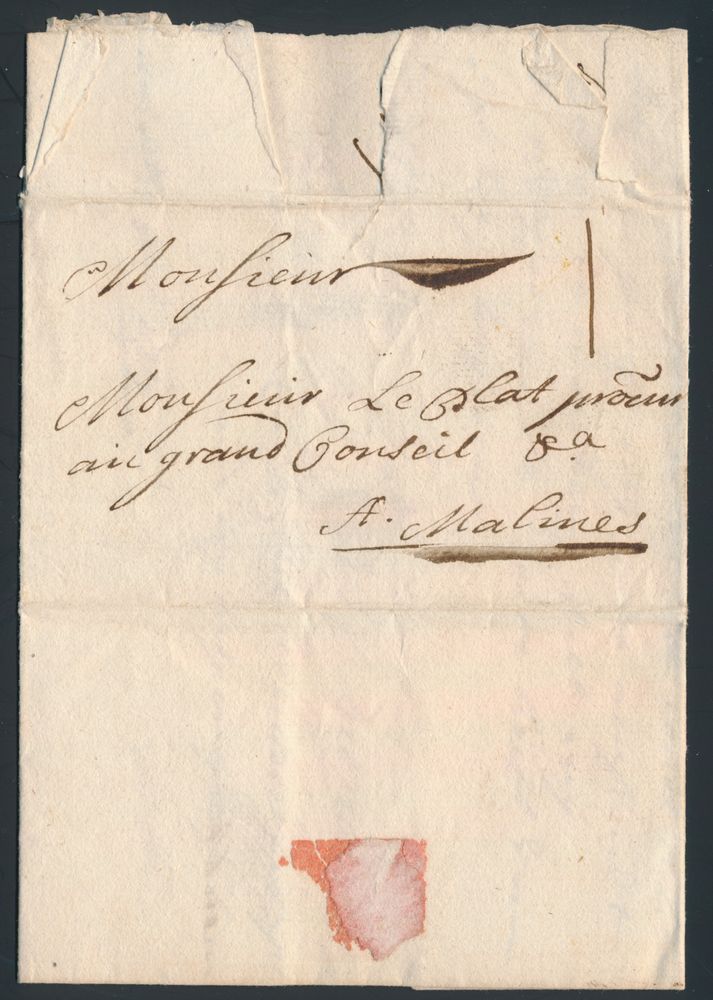 Monsieur
Monsieur Le Plat procur
au grand Conseil &a
A. Malines